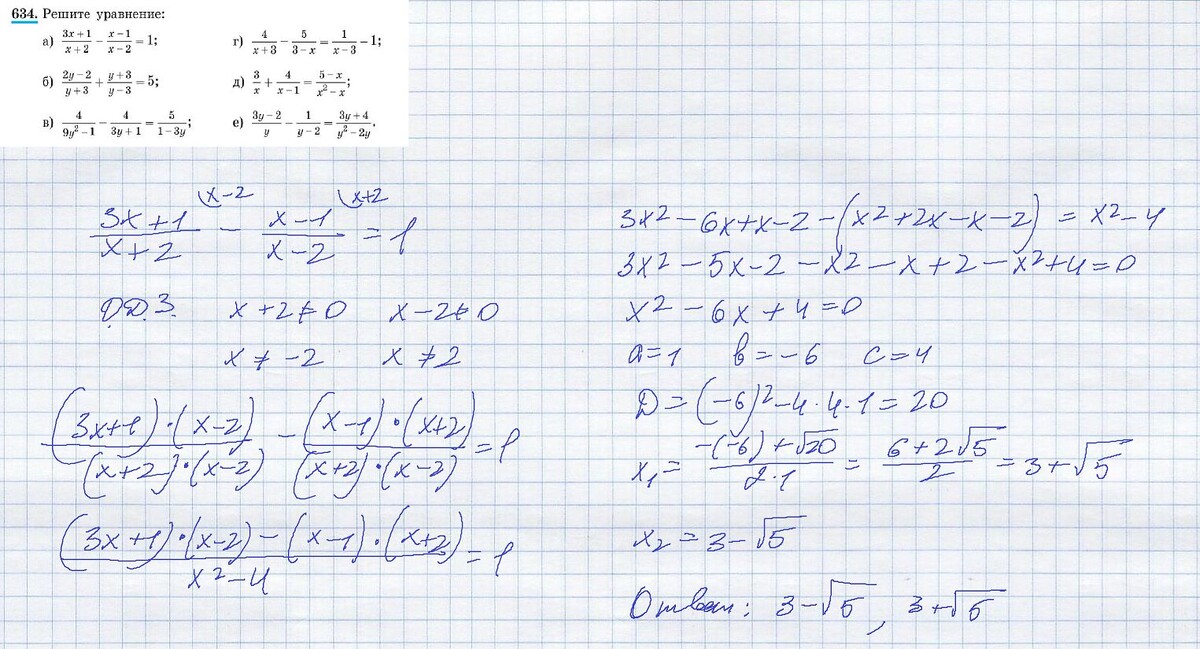 634. Решите уравнение:
а) (3x+1)/(x+2) − (x−1)/(x−2) = 1;
б) (2y−2)/(y+3) + (y+3)/(y−3) = 5;
в) 4/(9y²−1) − 4/(3y+1) = 5/(1−3y);
г) 4/(x+3) − 5/(3−x) = 1/(x−3) − 1;
д) 3/x + 4/(x−1) = (5−x)/(x²−x);
е) (3y−2)/y − 1/(y−2) = (3y+4)/(y²−2y).
x−2 x+2
(3x+1)/(x+2) − (x−1)/(x−2) = 1
О.Д.З. x+2≠0 x−2≠0
x≠−2 x≠2
((3x+1)·(x−2))/((x+2)·(x−2)) − ((x−1)·(x+2))/((x+2)·(x−2)) = 1
((3x+1)·(x−2) − (x−1)·(x+2))/(x²−4) = 1
3x²−6x+x−2−(x²+2x−x−2) = x²−4
3x²−5x−2−x²−x+2−x²+4=0
x²−6x+4=0
a=1 b=−6 c=4
D=(−6)²−4·4·1=20
x₁ = (−(−6)+√20)/(2·1) = (6+2√5)/2 = 3+√5
x₂ = 3−√5
Ответ: 3−√5, 3+√5